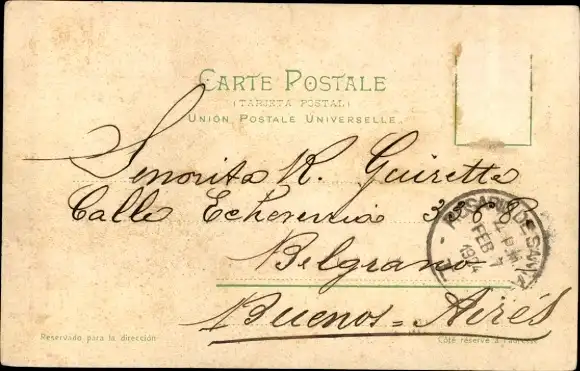 CARTE POSTALE
(TARJETA POSTAL)
UNIÓN POSTALE UNIVERSELLE.
Senorita R. Guirette
Calle Echeverria 3368
Belgrano
Buenos=Aires
ROSARIO DE SANTA
FEB 7
Reservado para la dirección
Côté réservé à l'adresse